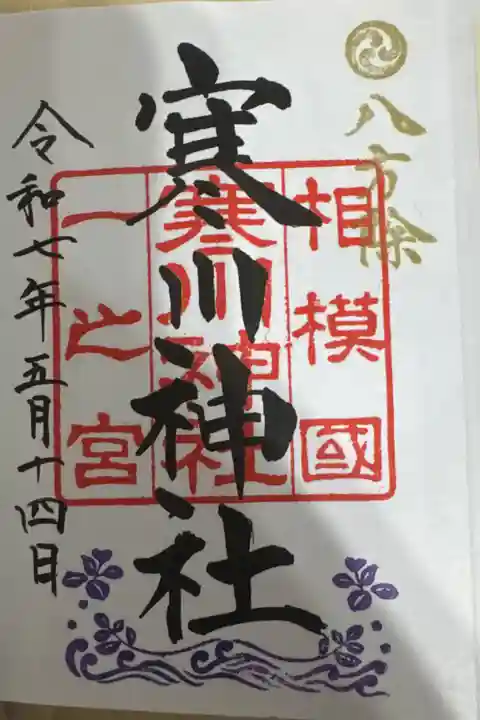 八方除
相模國
寒川神社
一之宮
寒川神社
令和七年五月十四日